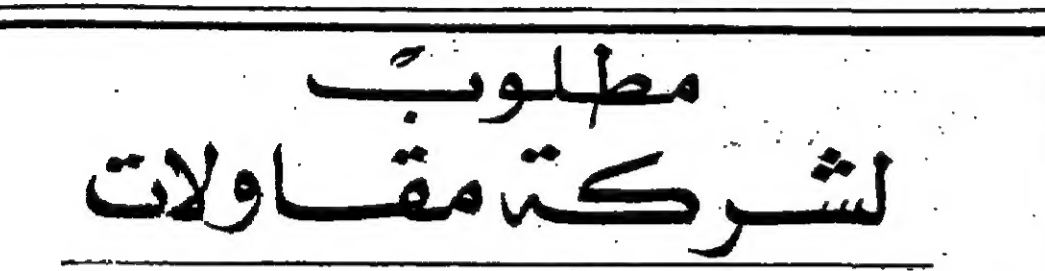 مطلوب
لشركة مقاولات